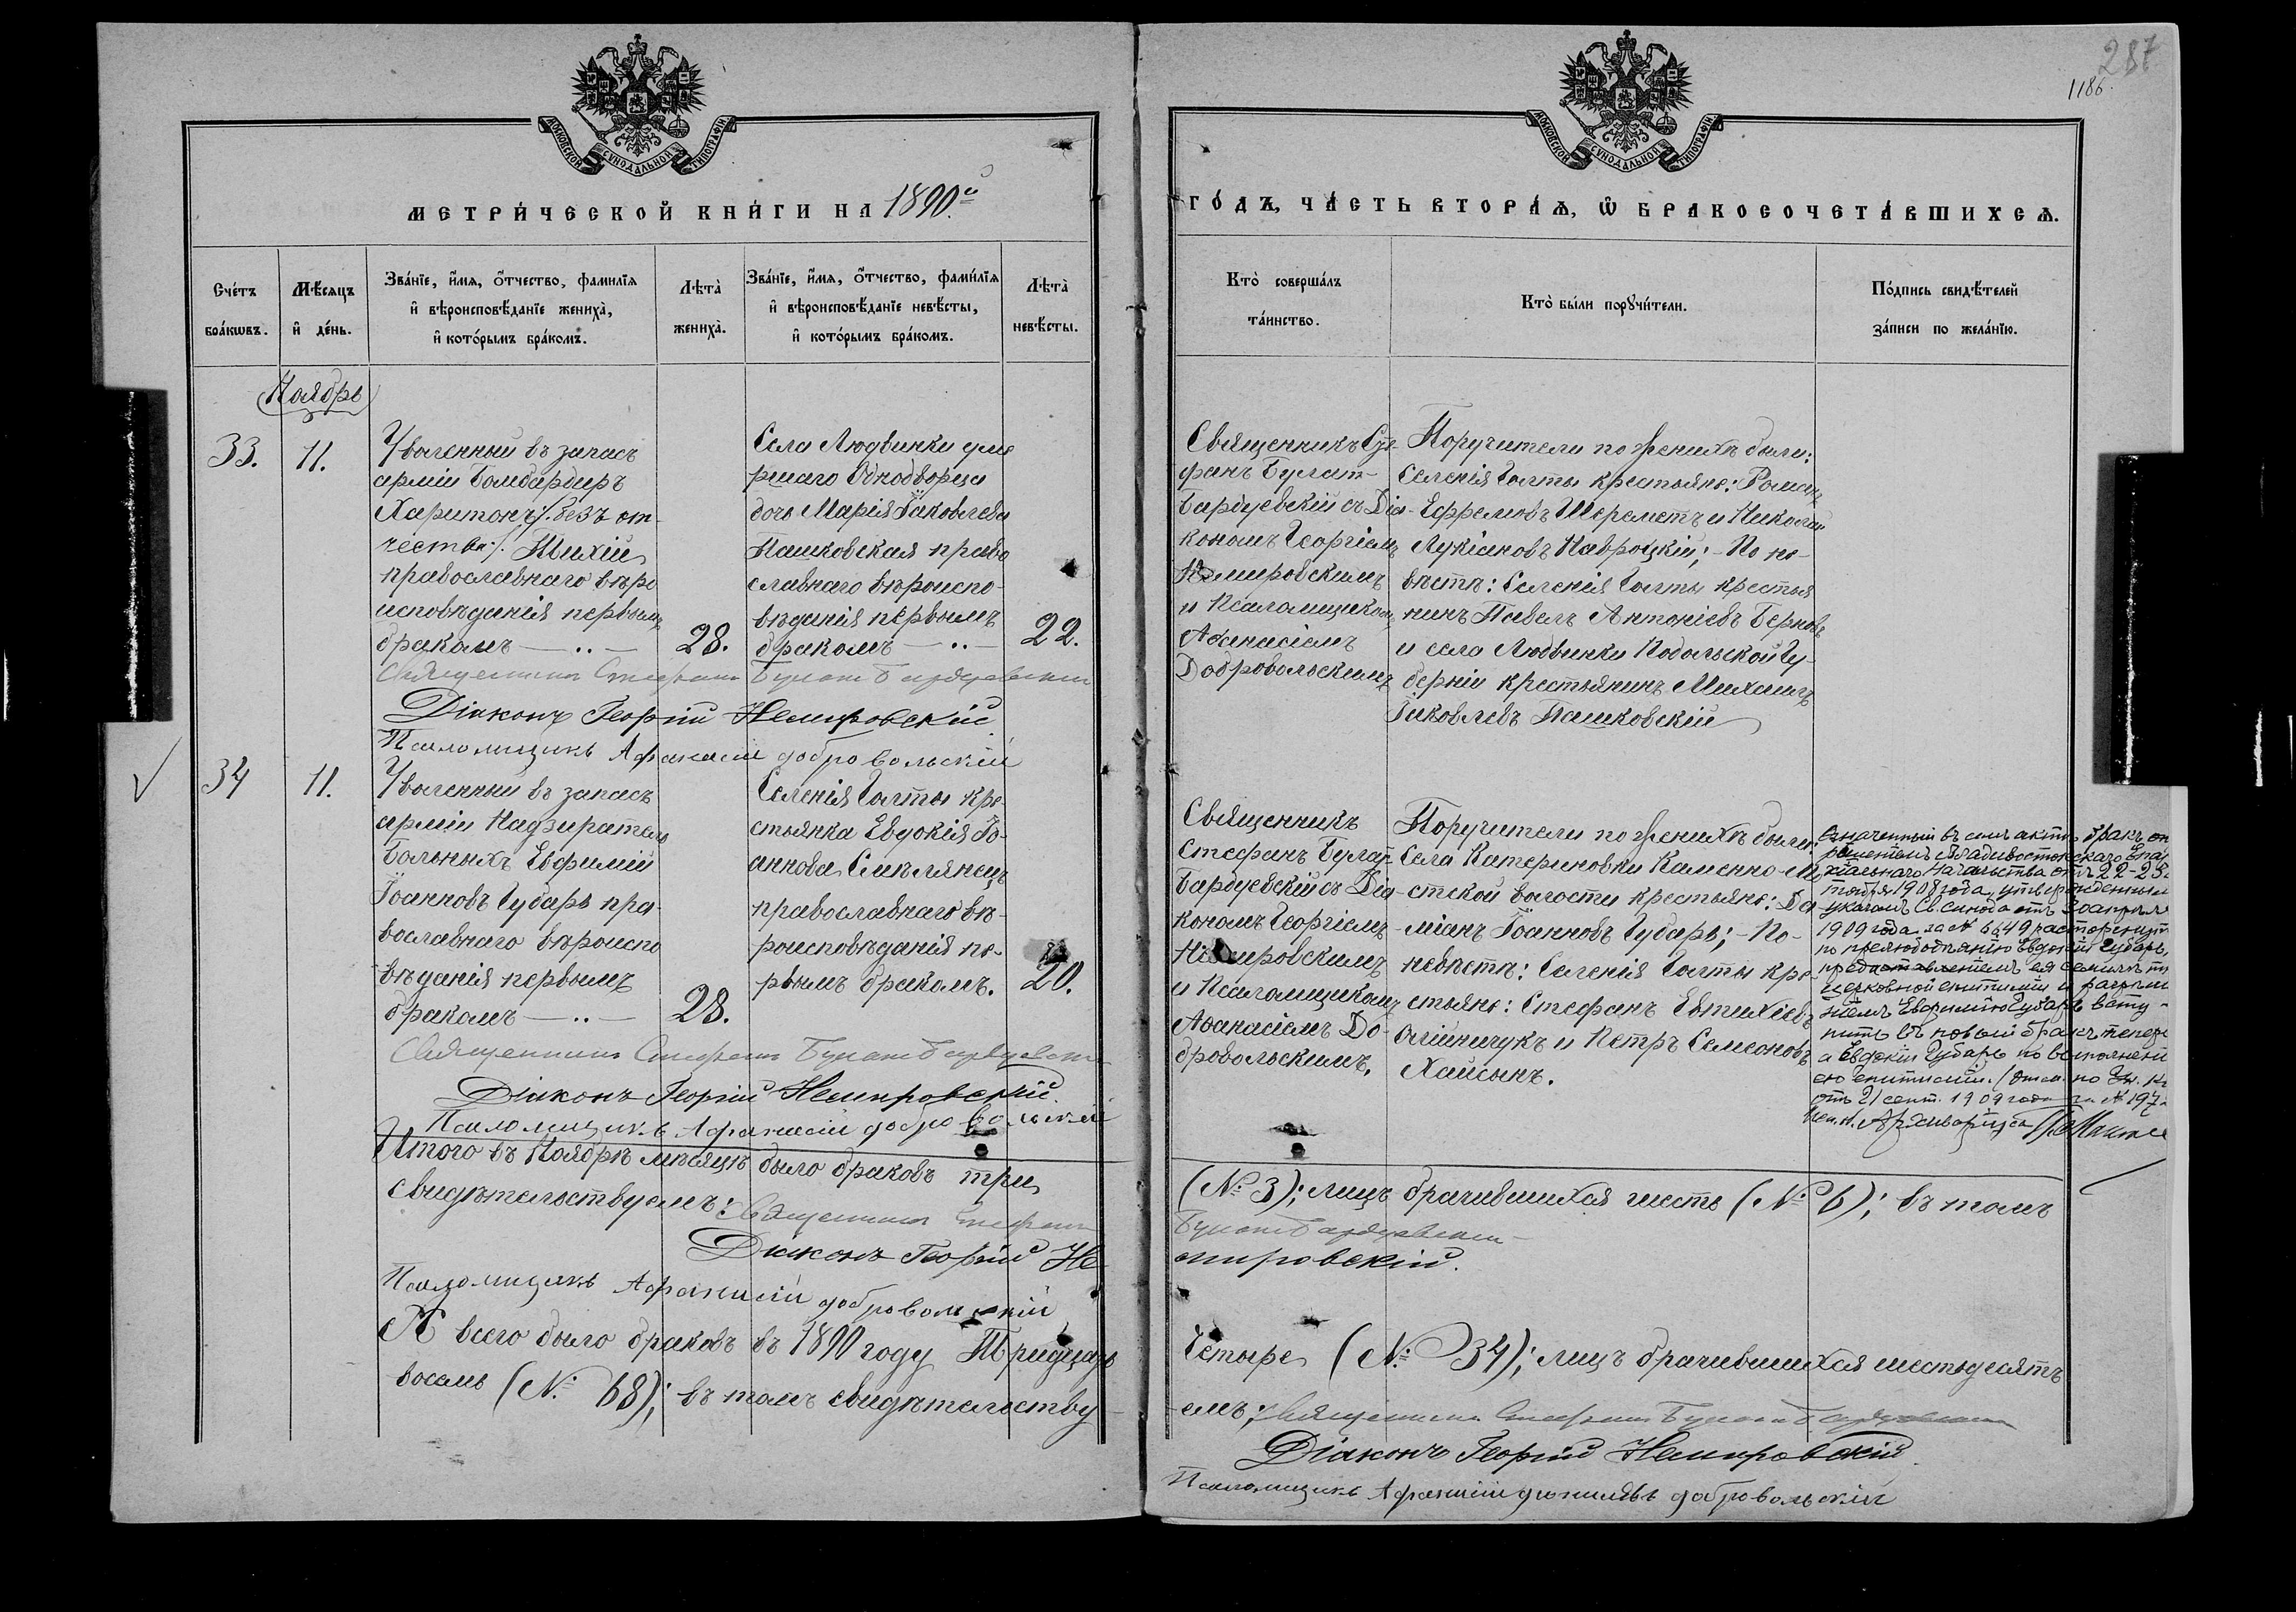 287
1186.
МОСКОВСКОЙ СУНОДАЛЬНОЙ ТИПОГРАФІИ
МОСКОВСКОЙ СУНОДАЛЬНОЙ ТИПОГРАФІИ
МЕТРИ́ЧЕСКОЙ КНИ́ГИ НА 1890й
ГО́ДЪ, ЧА́СТЬ ВТОРА́Ѧ, Ѽ БРАКОСОЧЕТА́ВШИХСѦ.
Сче́тъ
бра́кωвъ.
Мѣ́сѧцъ
и҆ де́нь.
Зва́нїе, и҆́мѧ, ѻ҆́тчество, фамилїѧ
и҆ вѣроисповѣ́данїе жениха̀,
и҆ кото́рымъ бра́комъ.
Лѣта̀
жениха̀.
Зва́нїе, и҆́мѧ, ѻ҆́тчество, фами́лїѧ
и҆ вѣроисповѣ́данїе невѣ́сты,
и҆ кото́рымъ бра́комъ.
Лѣта̀
невѣ́сты.
Кто̀ соверша́лъ
та́инство.
Кто̀ бы́ли порꙋчи́тели.
По́дпись свидѣ́телей
за́писи по жела́нїю.
Ноябрь
33.
11.
Уволенный въ запасъ
арміи Бомбардиръ
Харитонъ /:безъ от-
чества:/
православнаго вѣро
исповѣданія первымъ
бракомъ — .. —
28.
Села Людвинки уме
ршаго Однодворца
дочь Марія Іаковлева
Пашковская право
славнаго вѣроиспо-
вѣданія первымъ
бракомъ — .. —
22.
Священникъ Сте-
фанъ Булат-
Бардуевскій съ Діа-
кономъ Георгіемъ
Немировскимъ
и Псаломщикомъ
Аѳанасіемъ
Добровольскимъ
Поручители по женихѣ были:
Селенія Голты крестьяне: Романъ
Ефремовъ Шереметъ и Николай
Лукіановъ Навроцкій; - По не-
вѣстѣ: Селенія Голты крестья
нинъ Павелъ Антоніевъ
и села Людвинки Подольской Гу-
берніи крестьянинъ Михаилъ
Іаковлевъ Пашковскій
Священникъ Стефанъ Булатъ Бардуевскій
Діаконъ Георгій Немировскій.
Псаломщикъ Афанасій добровольскій
34
11.
Уволенный въ запасъ
арміи Надзиратель
Больныхъ Евфимій
Іоанновъ Губарь пра-
вославнаго вѣроиспо
вѣданія первымъ
бракомъ — .. —
28.
Селенія Голты кре-
стьянка Евдокія Іо-
аннова
православнаго вѣ-
роисповѣданія пе-
рвымъ бракомъ.
20.
Священникъ
Стефанъ Булат-
Бардуевскій съ Діа-
кономъ Георгіемъ
Немировскимъ
и Псаломщикомъ
Аѳанасіемъ До-
бровольскимъ.
Поручители по женихѣ были:
Села Катериновки Каменно-Мо
стской волости крестьяне: Да
міанъ Іоанновъ Губарь; - По-
невѣстѣ: Селенія Голты кре-
стьяне: Стефанъ Евтихіевъ
Олійничукъ и Петръ Семеоновъ
Хаисынъ.
Означенный въ семъ актѣ бракъ
рѣшеніемъ Владивостокскаго Епар
хіальнаго Начальства отъ 22-23
1908 года, утвержденнымъ
указомъ Св. Синода отъ
1909 года за № 6649 расторгнутъ
по прелюбодѣянію Евдокіи Губарь,
церковной епитиміи и
Евфимію Губарь всту-
пить въ новый бракъ
а Евдокіи Губарь по выполненіи
ею епитиміи.
отъ 21 сент. 1909 года за № 197
Архиваріуса
Священникъ Стефанъ Булатъ Бардуевскій
Діаконъ Георгій Немировскій.
Псаломщикъ Афанасій добровольскій
Итого въ Ноябрѣ мѣсяцѣ было браковъ три
(№ 3); лицъ брачившихся шесть (№ 6); въ томъ
свидѣтельствуемъ: Священникъ Стефанъ
Булатъ Бардуевскій
Діаконъ Георгій Не-
мировскій.
Псаломщикъ Афанасій добровольскій
А всего было браковъ въ 1890 году Тридцать
Четыре (№ 34); лицъ брачившихся шестьдесятъ
восемь (№ 68); въ томъ свидѣтельству-
емъ: Священникъ Стефанъ Булатъ Бардуевскій
Діаконъ Георгій Немировскій.
Псаломщикъ Афанасій добровольскій